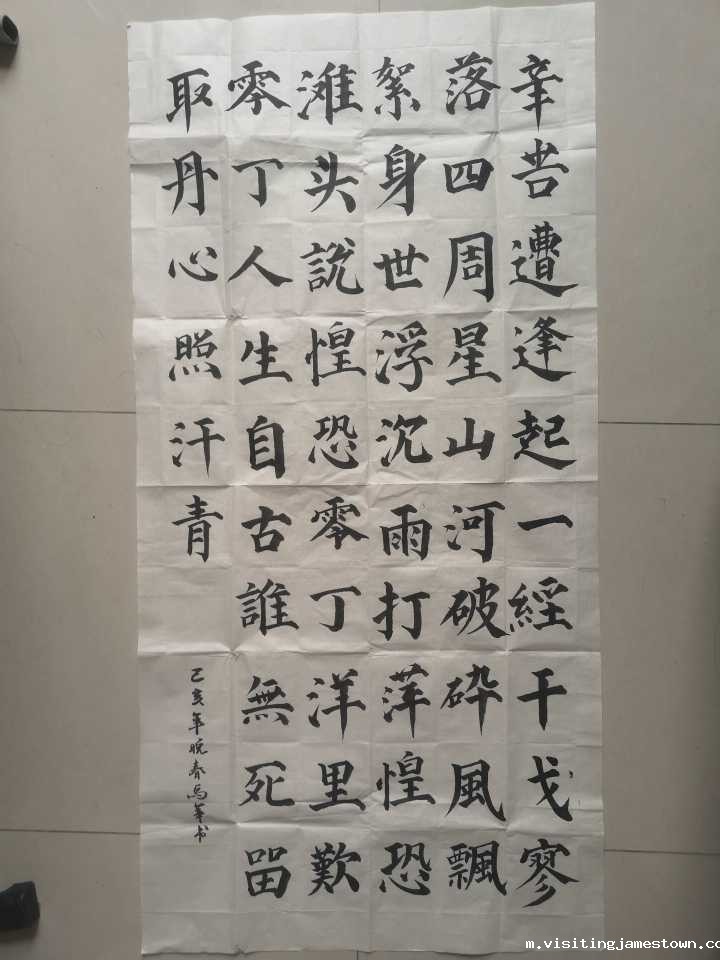 辛苦遭逢起一經干戈寥
落四周星山河破碎風飄
絮身世浮沉雨打萍惶恐
滩头説惶恐零丁洋里歎
零丁人生自古誰無死留
取丹心照汗青
己亥年晚春馬華书
m.visitingjamestown.co